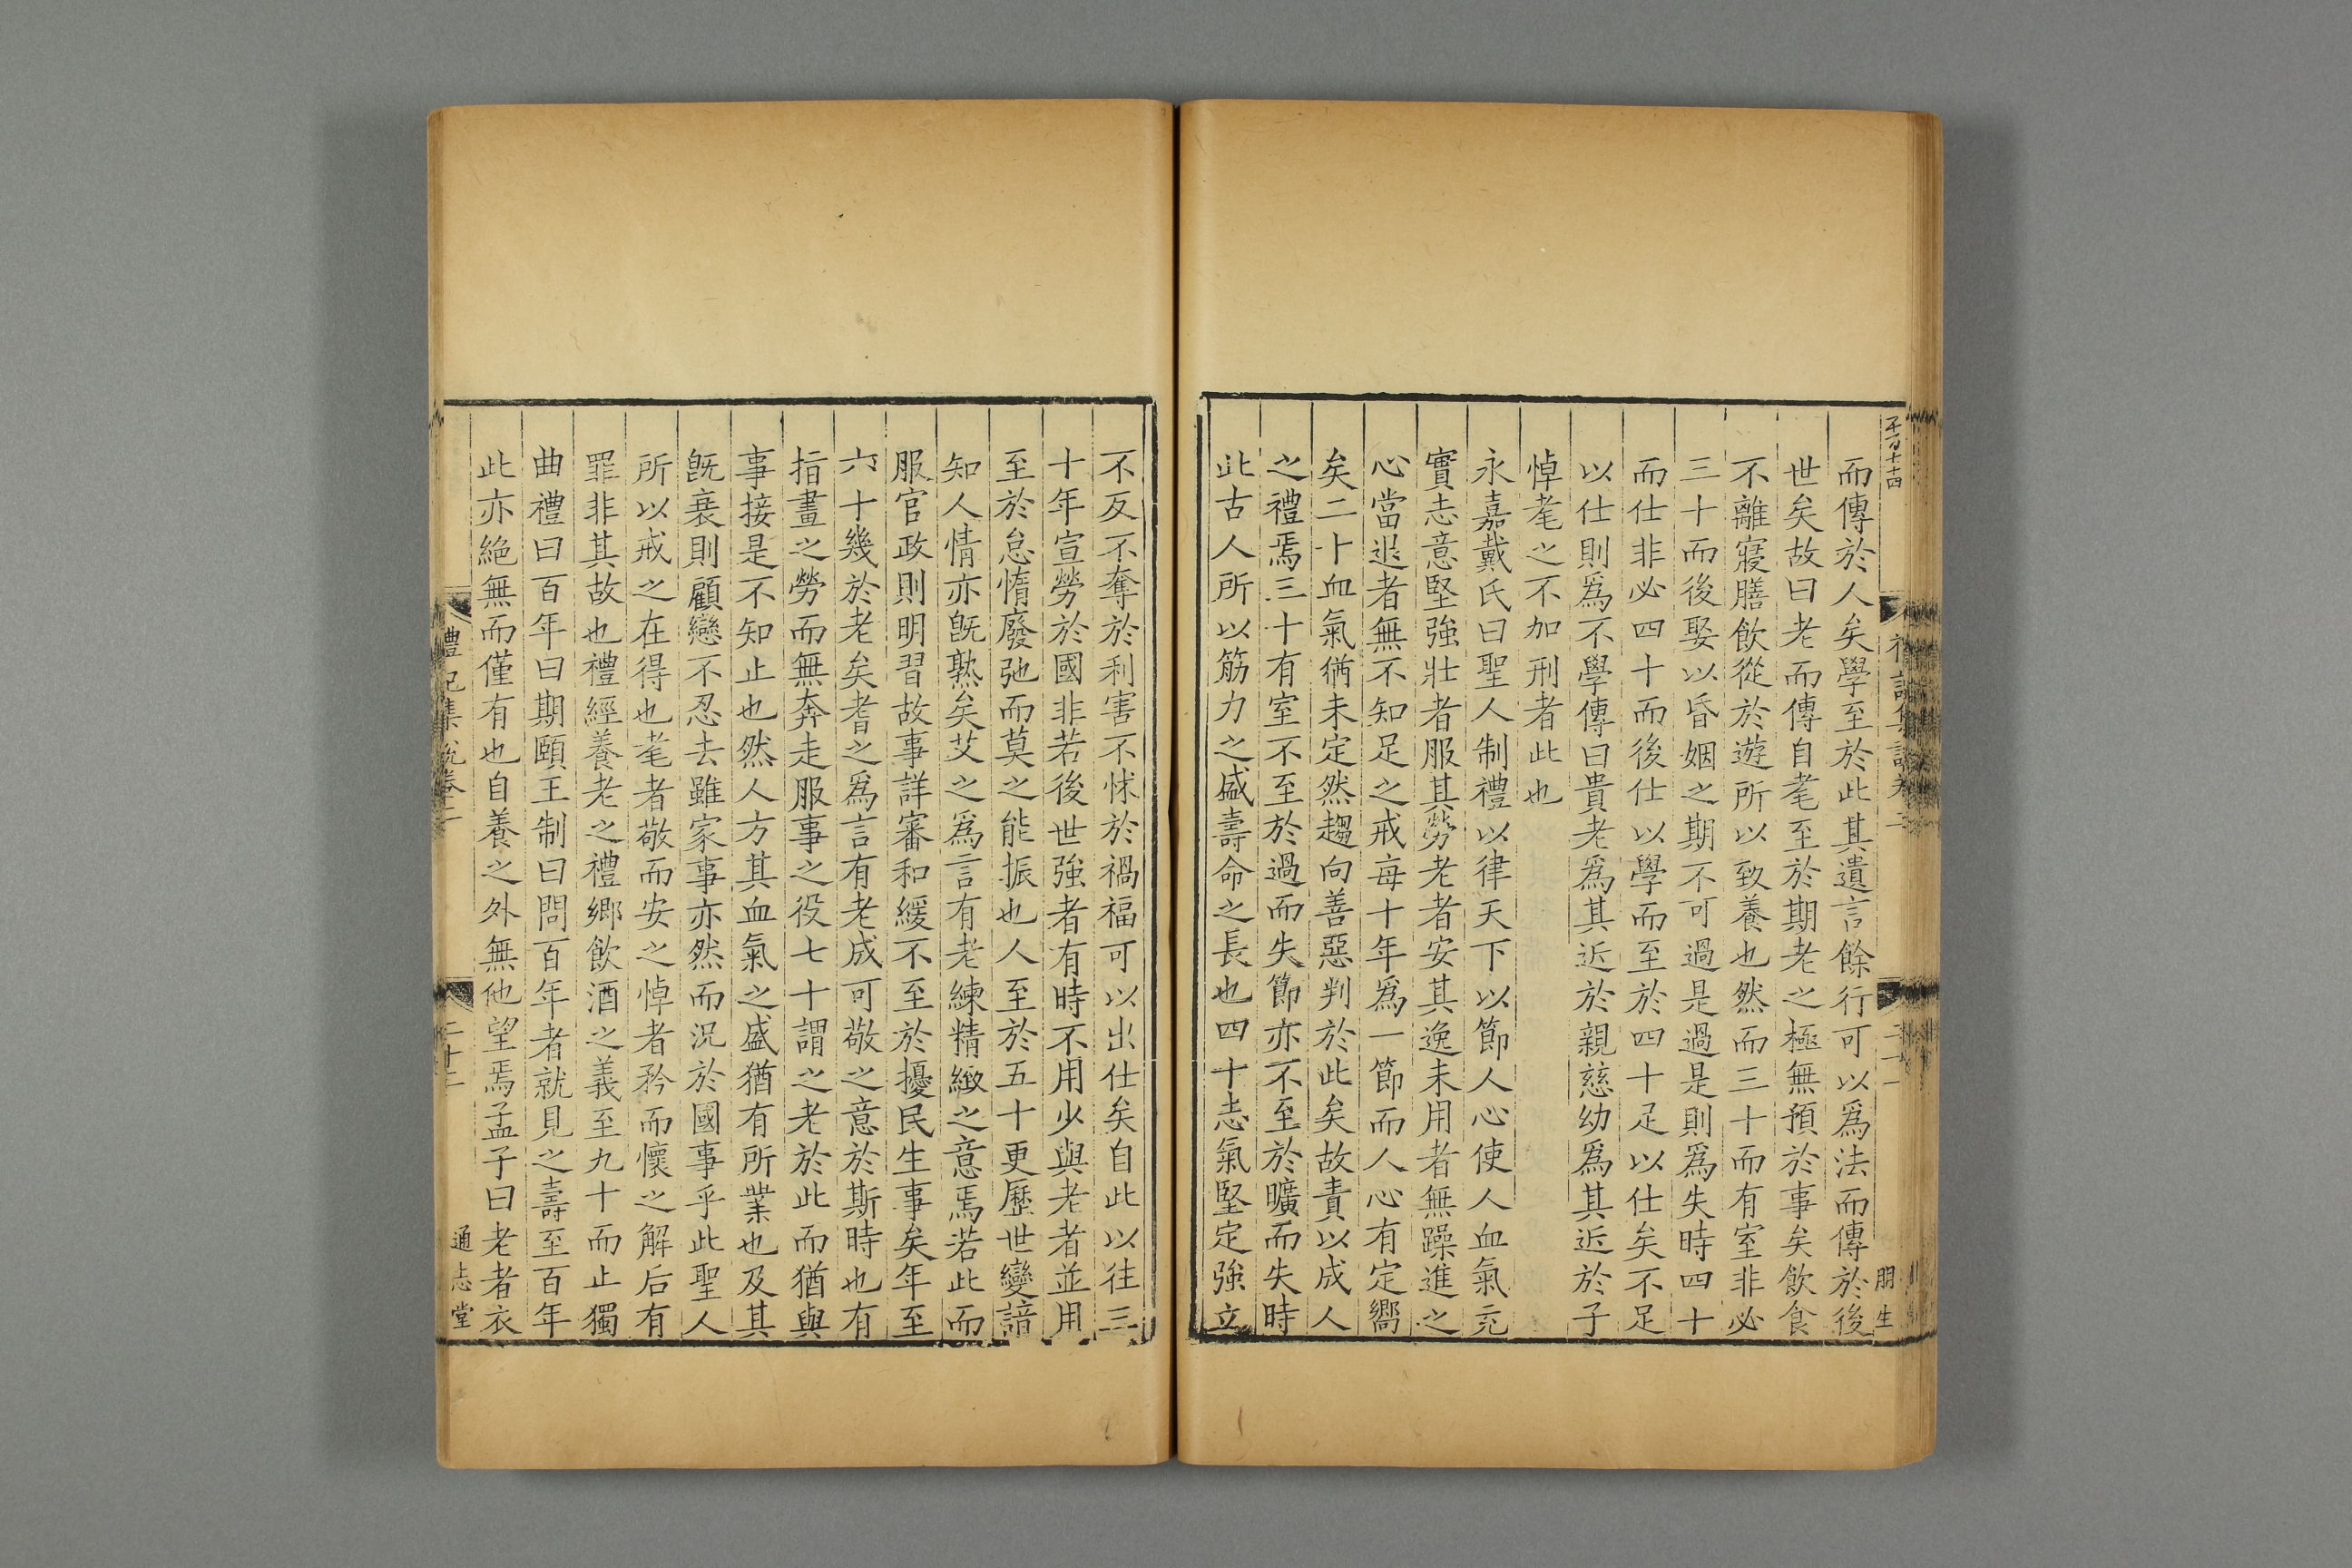 而傳於人矣學至於此其遺言餘行可以爲法而傳於後
世矣故曰老而傳自耄至於期老之極無預於事矣飲食
不離寢膳飲從於遊所以致養也然而三十而有室非必
三十而後娶以昏姻之期不可過是過是則爲失時四十
而仕非必四十而後仕以學而至於四十足以仕矣不足
以仕則爲不學傳曰貴老爲其近於親慈幼爲其近於子
悼耄之不加刑者此也
永嘉戴氏曰聖人制禮以律天下以節人心使人血氣充
實志意堅強壯者服其勞老者安其逸未用者無躁進之
心當退者無不知足之戒每十年爲一節而人心有定嚮
矣二十血氣猶未定然趨向善惡判於此矣故責以成人
之禮焉三十有室不至於過而失節亦不至於曠而失時
此古人所以筋力之盛壽命之長也四十志氣堅定強立
不反不奪於利害不怵於禍福可以出仕矣自此以往三
十年宣勞於國非若後世強者有時不用少與老者並用
至於怠惰廢弛而莫之能振也人至於五十更歷世變諳
知人情亦旣熟矣艾之爲言有老練精緻之意焉若此而
服官政則明習故事詳審和緩不至於擾民生事矣年至
六十幾於老矣耆之爲言有老成可敬之意於斯時也有
指畫之勞而無奔走服事之役七十謂之老於此而猶與
事接是不知止也然人方其血氣之盛猶有所業也及其
旣衰則顧戀不忍去雖家事亦然而況於國事乎此聖人
所以戒之在得也耄者敬而安之悼者矜而懷之解后有
罪非其故也禮經養老之禮鄉飲酒之義至九十而止獨
曲禮曰百年曰期頤王制曰問百年者就見之壽至百年
此亦絕無而僅有也自養之外無他望焉孟子曰老者衣
禮記集說卷二
二十二
通志堂
朋生